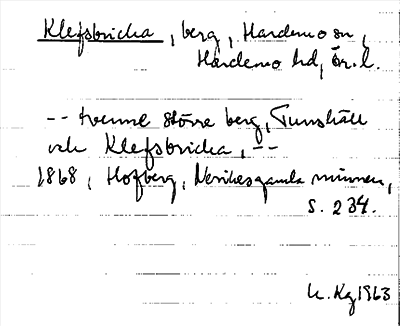 Klefsbricka, berg, Hardemo sn,
Hardemo hd, Ör. l.
-- tvenne större berg, Tunshäll
och Klefsbricka, --
1868, Hofberg, Nerikes gamla minnen,
S. 234.
U. Kg 1963